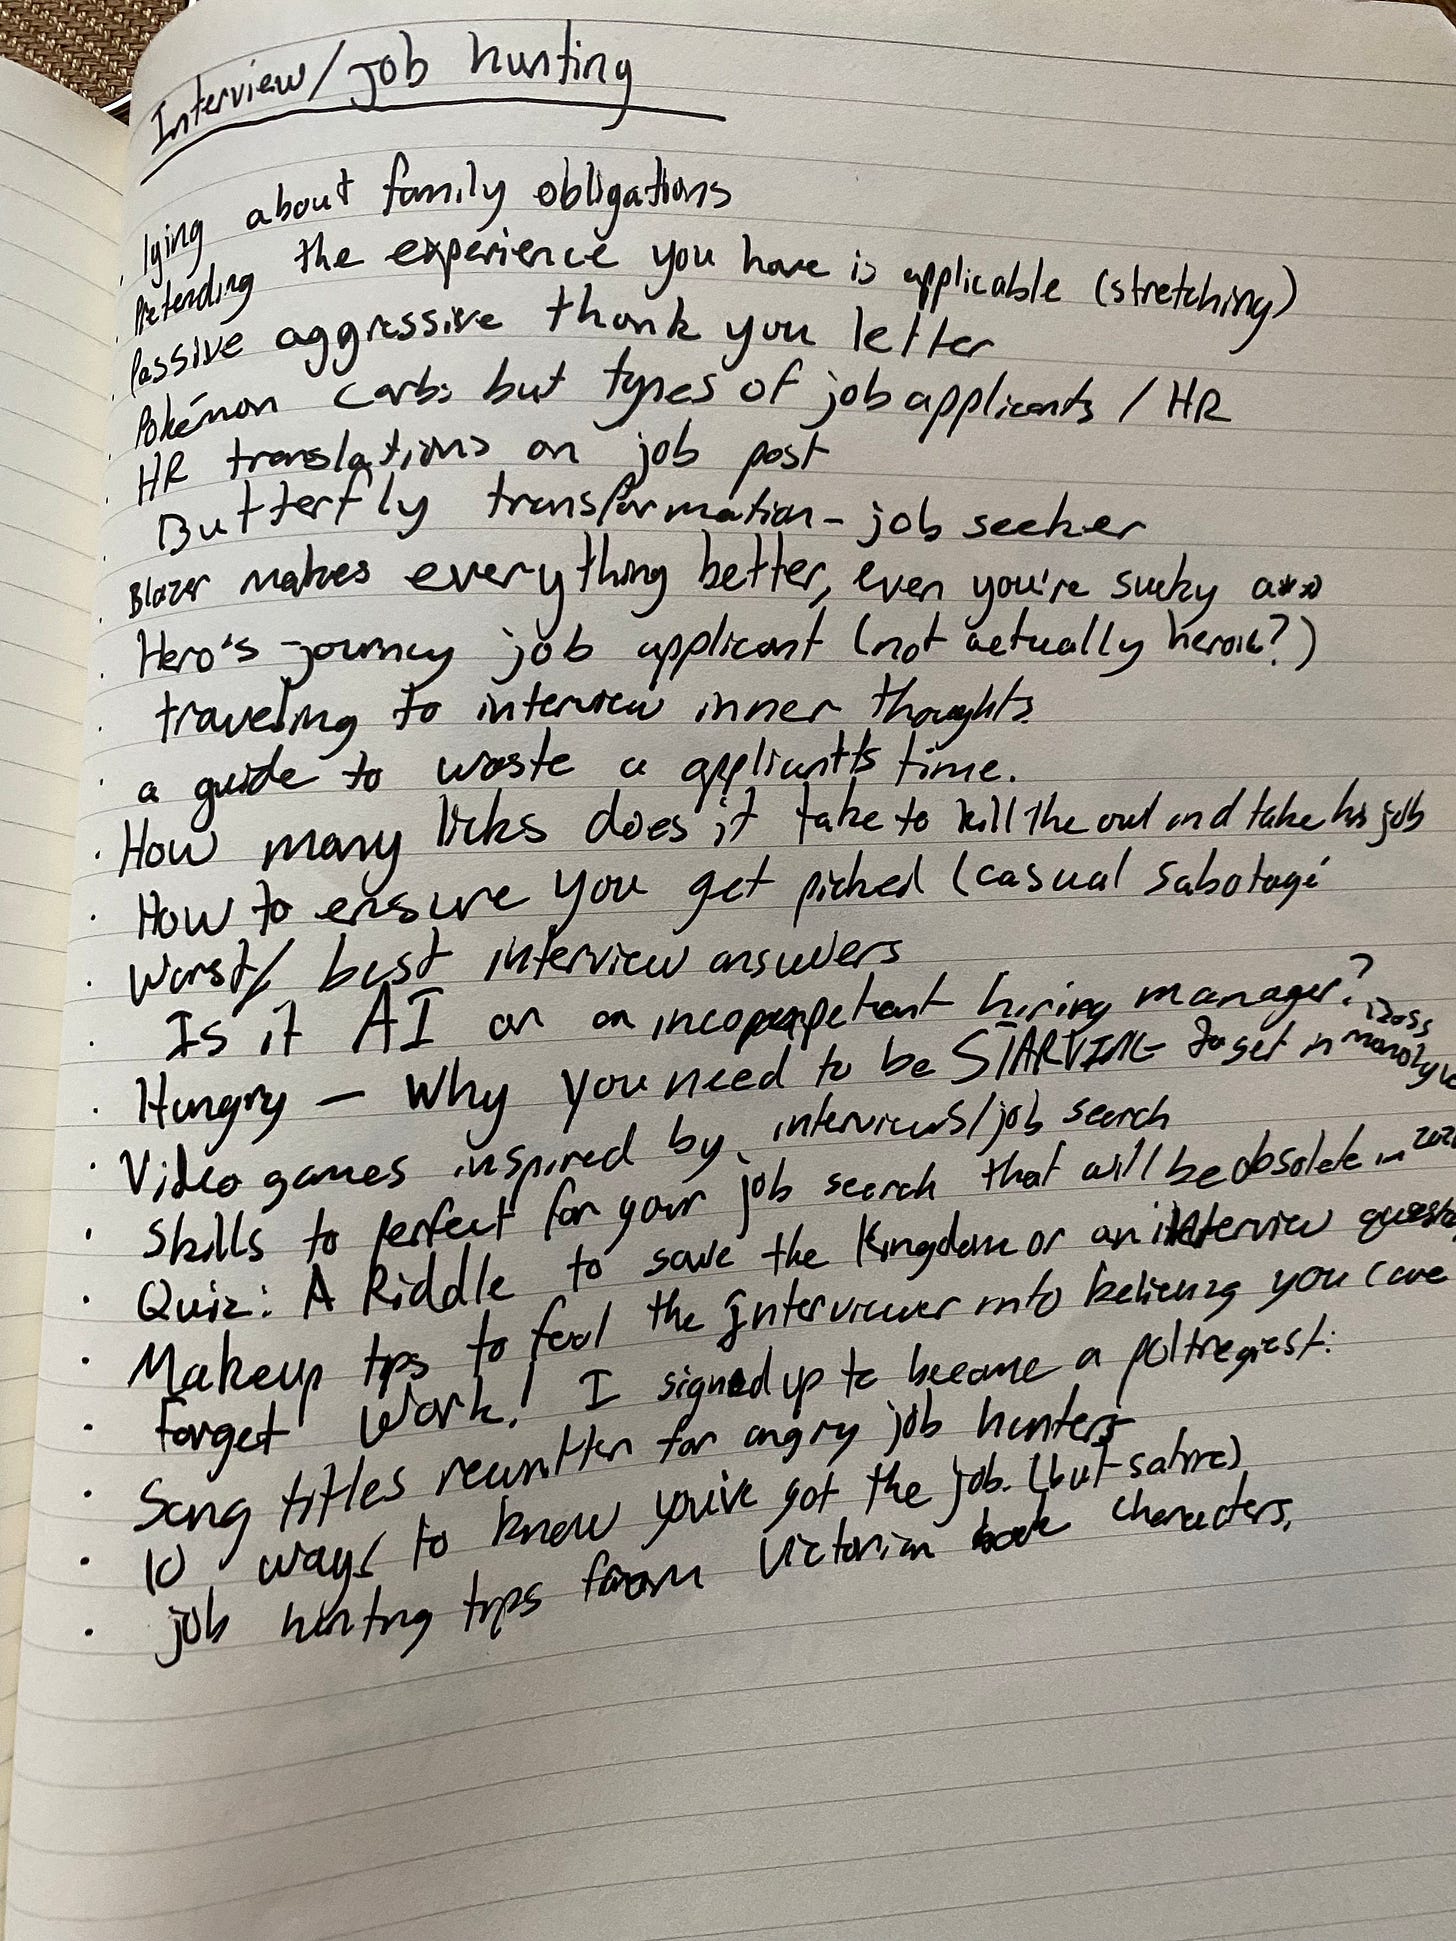 Interview/job hunting
· lying about family obligations
· Pretending the experience you have is applicable (stretching)
· Passive aggressive thank you letter
· Pokémon cards but types of job applicants / HR
· HR translations on job post
· Butterfly transformation - job seeker
· Blazer makes everything better, even you're sucky a**
· Hero's journey job applicant (not actually heroic?)
· traveling to interview inner thoughts.
· a guide to waste a applicants time.
· How many licks does it take to kill the owl and take his job
· How to ensure you get picked (casual sabotage
· Worst/ best interview answers
· Is it AI or an incompetent hiring manager?
· Hungry - Why you need to be STARVING to get in boss monologue
· Video games inspired by interviews/job search
· Skills to perfect for your job search that will be obsolete in
· Quiz: A Riddle to save the Kingdom or an interview
· Makeup tips to fool the Interviewer into believing you care
· Forget Work! I signed up to become a poltregiest.
· Song titles rewritten for angry job hunters
· 10 ways to know you've got the job. (but satire)
· job hunting tips from Victorian book characters.